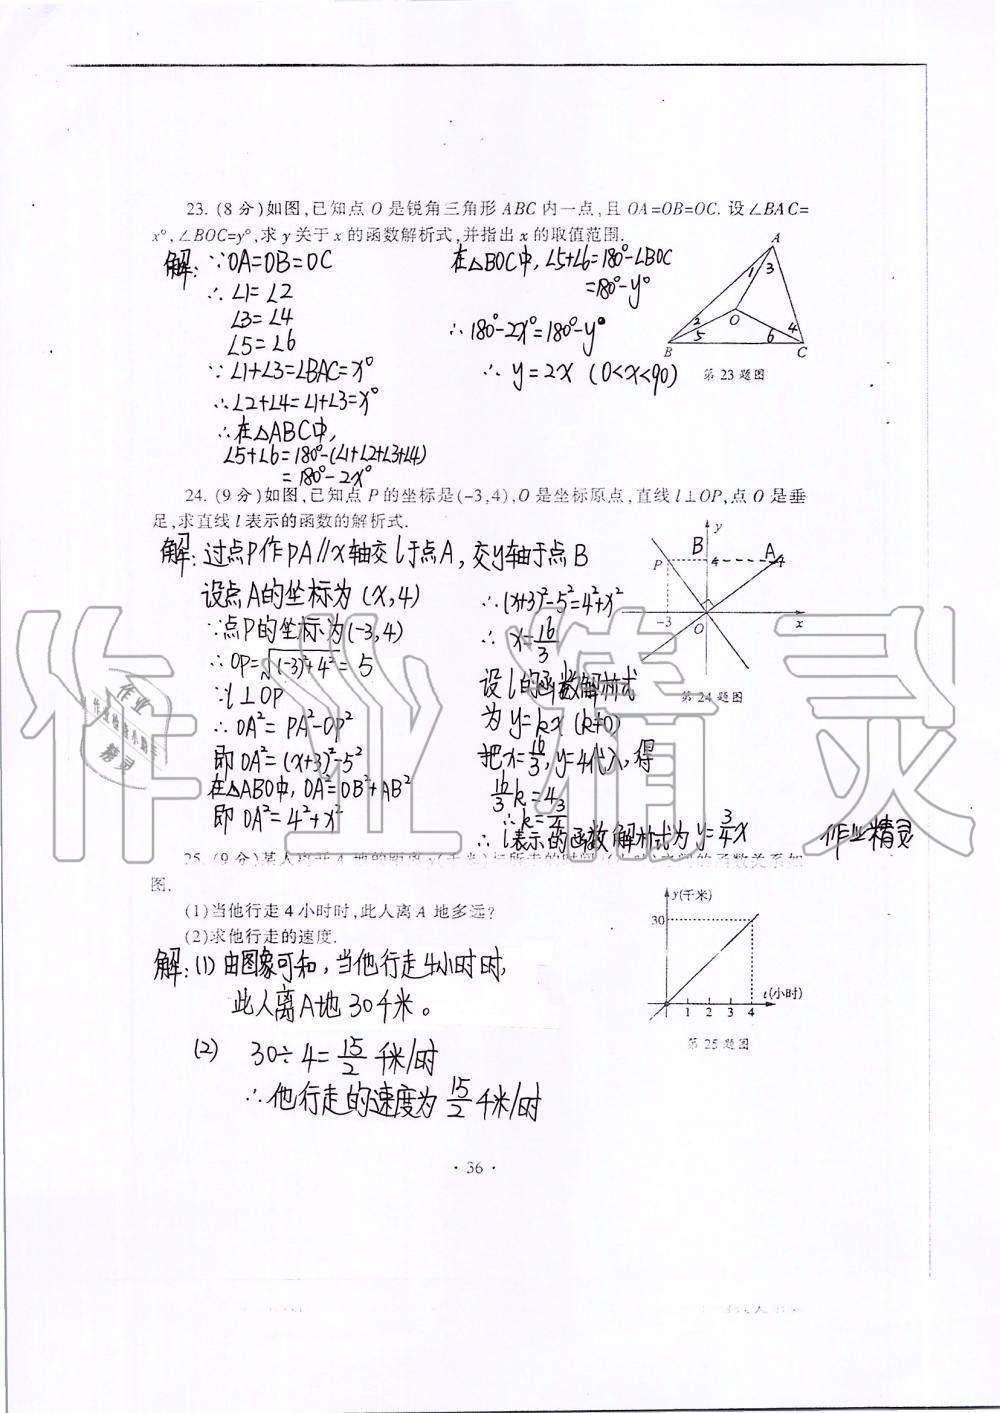 23. (8分)如图,已知点O是锐角三角形ABC内一点,且OA=OB=OC. 设∠BAC=
x°,∠BOC=y°,求y关于x的函数解析式,并指出x的取值范围.
解: ∵OA=OB=OC
∴ ∠1=∠2
∠3=∠4
∠5=∠6
∵ ∠1+∠3=∠BAC=x°
∴∠2+∠4=∠1+∠3=x°
∴在△ABC中,
∠5+∠6=180°-(∠1+∠2+∠3+∠4)
=180°-2x°
在△BOC中, ∠5+∠6=180°-∠BOC
=180°-y°
∴ 180°-2x°=180°-y°
∴ y=2x (0<x<90)
A
1
3
O
2
5
4
6
B
C
第23题图
24. (9分)如图,已知点P的坐标是(-3,4),O是坐标原点,直线l⊥OP,点O是垂
足,求直线l表示的函数的解析式.
解: 过点P作PA∥x轴交l于点A, 交y轴于点B
设点A的坐标为 (x,4)
∵点P的坐标为(-3,4)
∴ OP=√(-3)²+4²=5
∵l⊥OP
∴ OA²=PA²-OP²
即 OA²=(x+3)²-5²
在△ABO中, OA²=OB²+AB²
即 OA²=4²+x²
∴(x+3)²-5²=4²+x²
∴ x=16/3
设l的函数解析式
为 y=kx (k≠0)
把x=16/3, y=4代入, 得
16/3 k=4
∴k=3/4
∴ l表示的函数解析式为 y=3/4x
作业精灵
y
B
A
P
4
-3
O
x
第24题图
25. (9分)某人离开A地的距离y(千米)与所走的时间t(小时)之间的函数关系如
图.
(1)当他行走4小时时,此人离A地多远?
(2)求他行走的速度.
解: (1) 由图象可知, 当他行走4小时时,
此人离A地30千米。
(2) 30÷4=15/2 千米/时
∴他行走的速度为 15/2 千米/时
y(千米)
30
t(小时)
1 2 3 4
第25题图
· 36 ·
作业精灵
作业
作业检查小助手
精灵